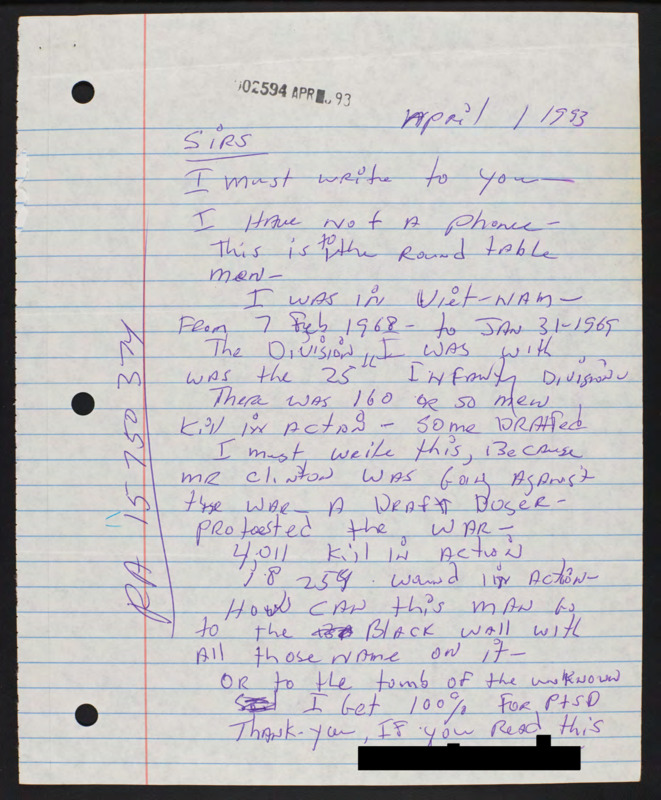 02594 APR 93
April 1 1993
SiRS
I must write to you —
I HAVE Not A phone –
This is to the Round table
men –
I WAS iN Viet-NAM –
From 7 Feb 1968 – to JAN 31-1969
The DiVisioN I WAS with
WAS the 25th INFANty DiVision
There WAS 160 OR SO men
Kill iN ActioN – Some DRAFted
I must write this, BecAuse
mR CliNtoN WAS GoiNg AgAiNst
the WAR – A DRAFt DoGeR –
PRotoested the WAR –
4,011 Kill iN ActioN
18 259 wound iN ActioN –
HoW CAN this mAN Go
to the BlAck wAll with
All those NAme oN it –
OR to the tomb of the unKNowN
I Get 100% FOR PtSD
ThANK-you, IF you ReAd this
RA 15 750 374